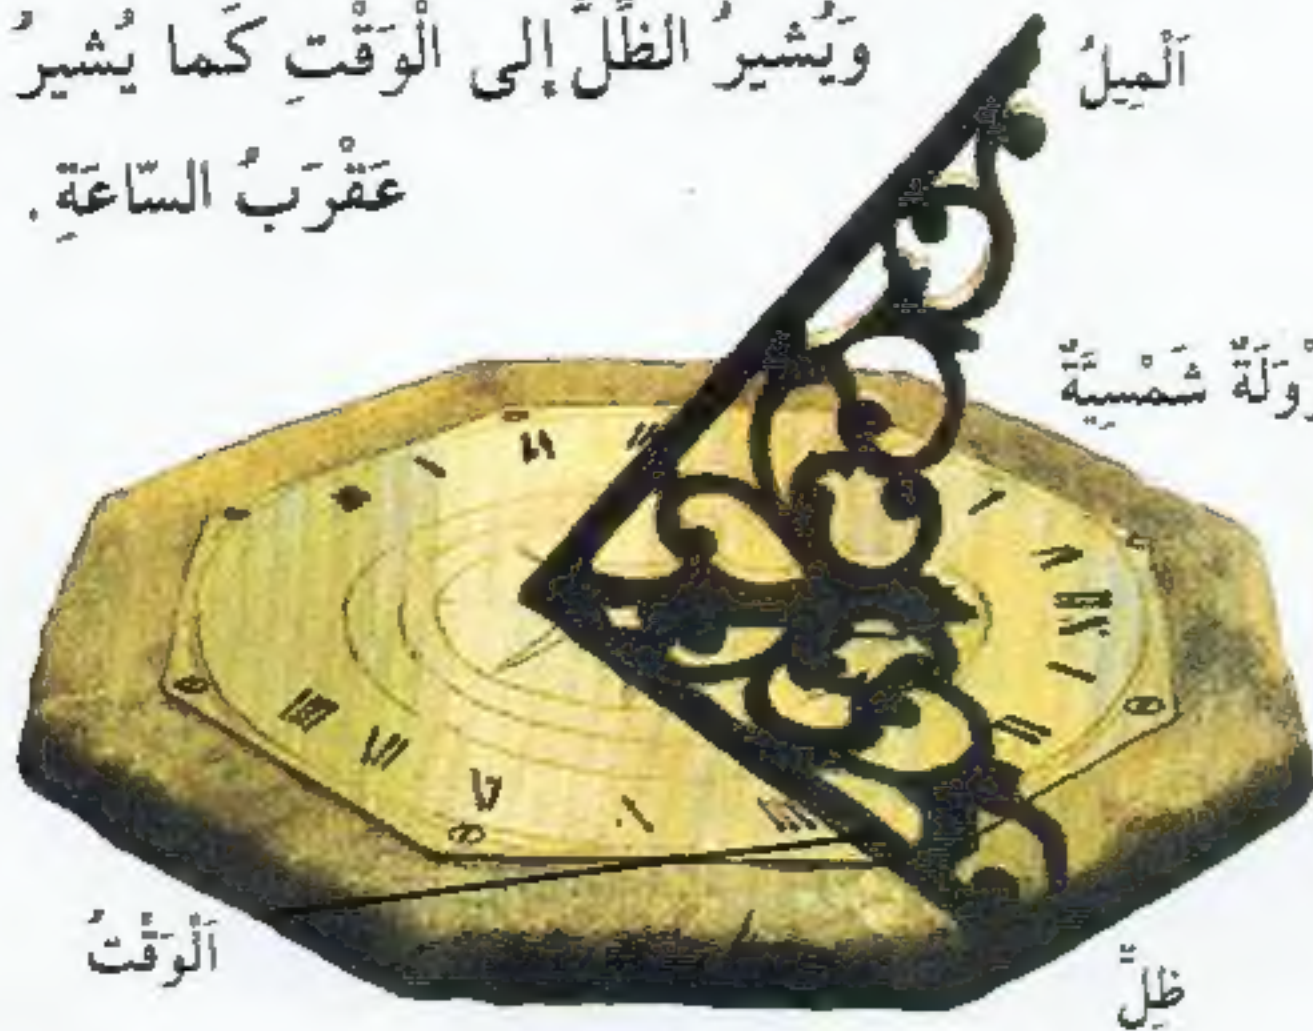 وَيُشيرُ الظِّلُّ إِلى الْوَقْتِ كَما يُشيرُ
عَقْرَبُ السّاعَةِ.
اَلْمِيلُ
شَمْسِيَّةٌ
اَلْوَقْتُ
ظِلٌّ